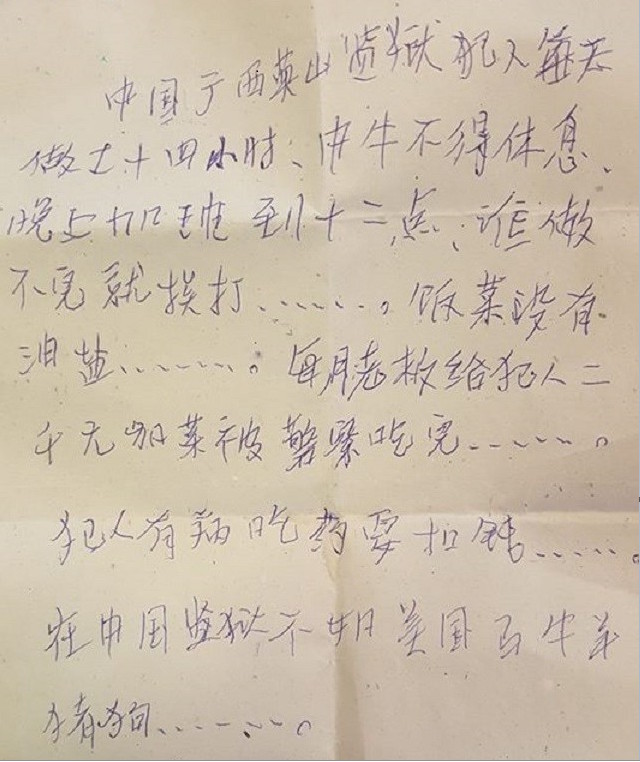 中国广西英山监狱犯人每天
做工十四小时、中午不得休息、
晚上加班到十二点、谁做
不完就挨打………。饭菜没有
油盐………。每月老板给犯人二
千元加菜被警察吃完………。
犯人有病吃药要扣钱………。
在中国监狱不如美国马牛羊
猪狗………。